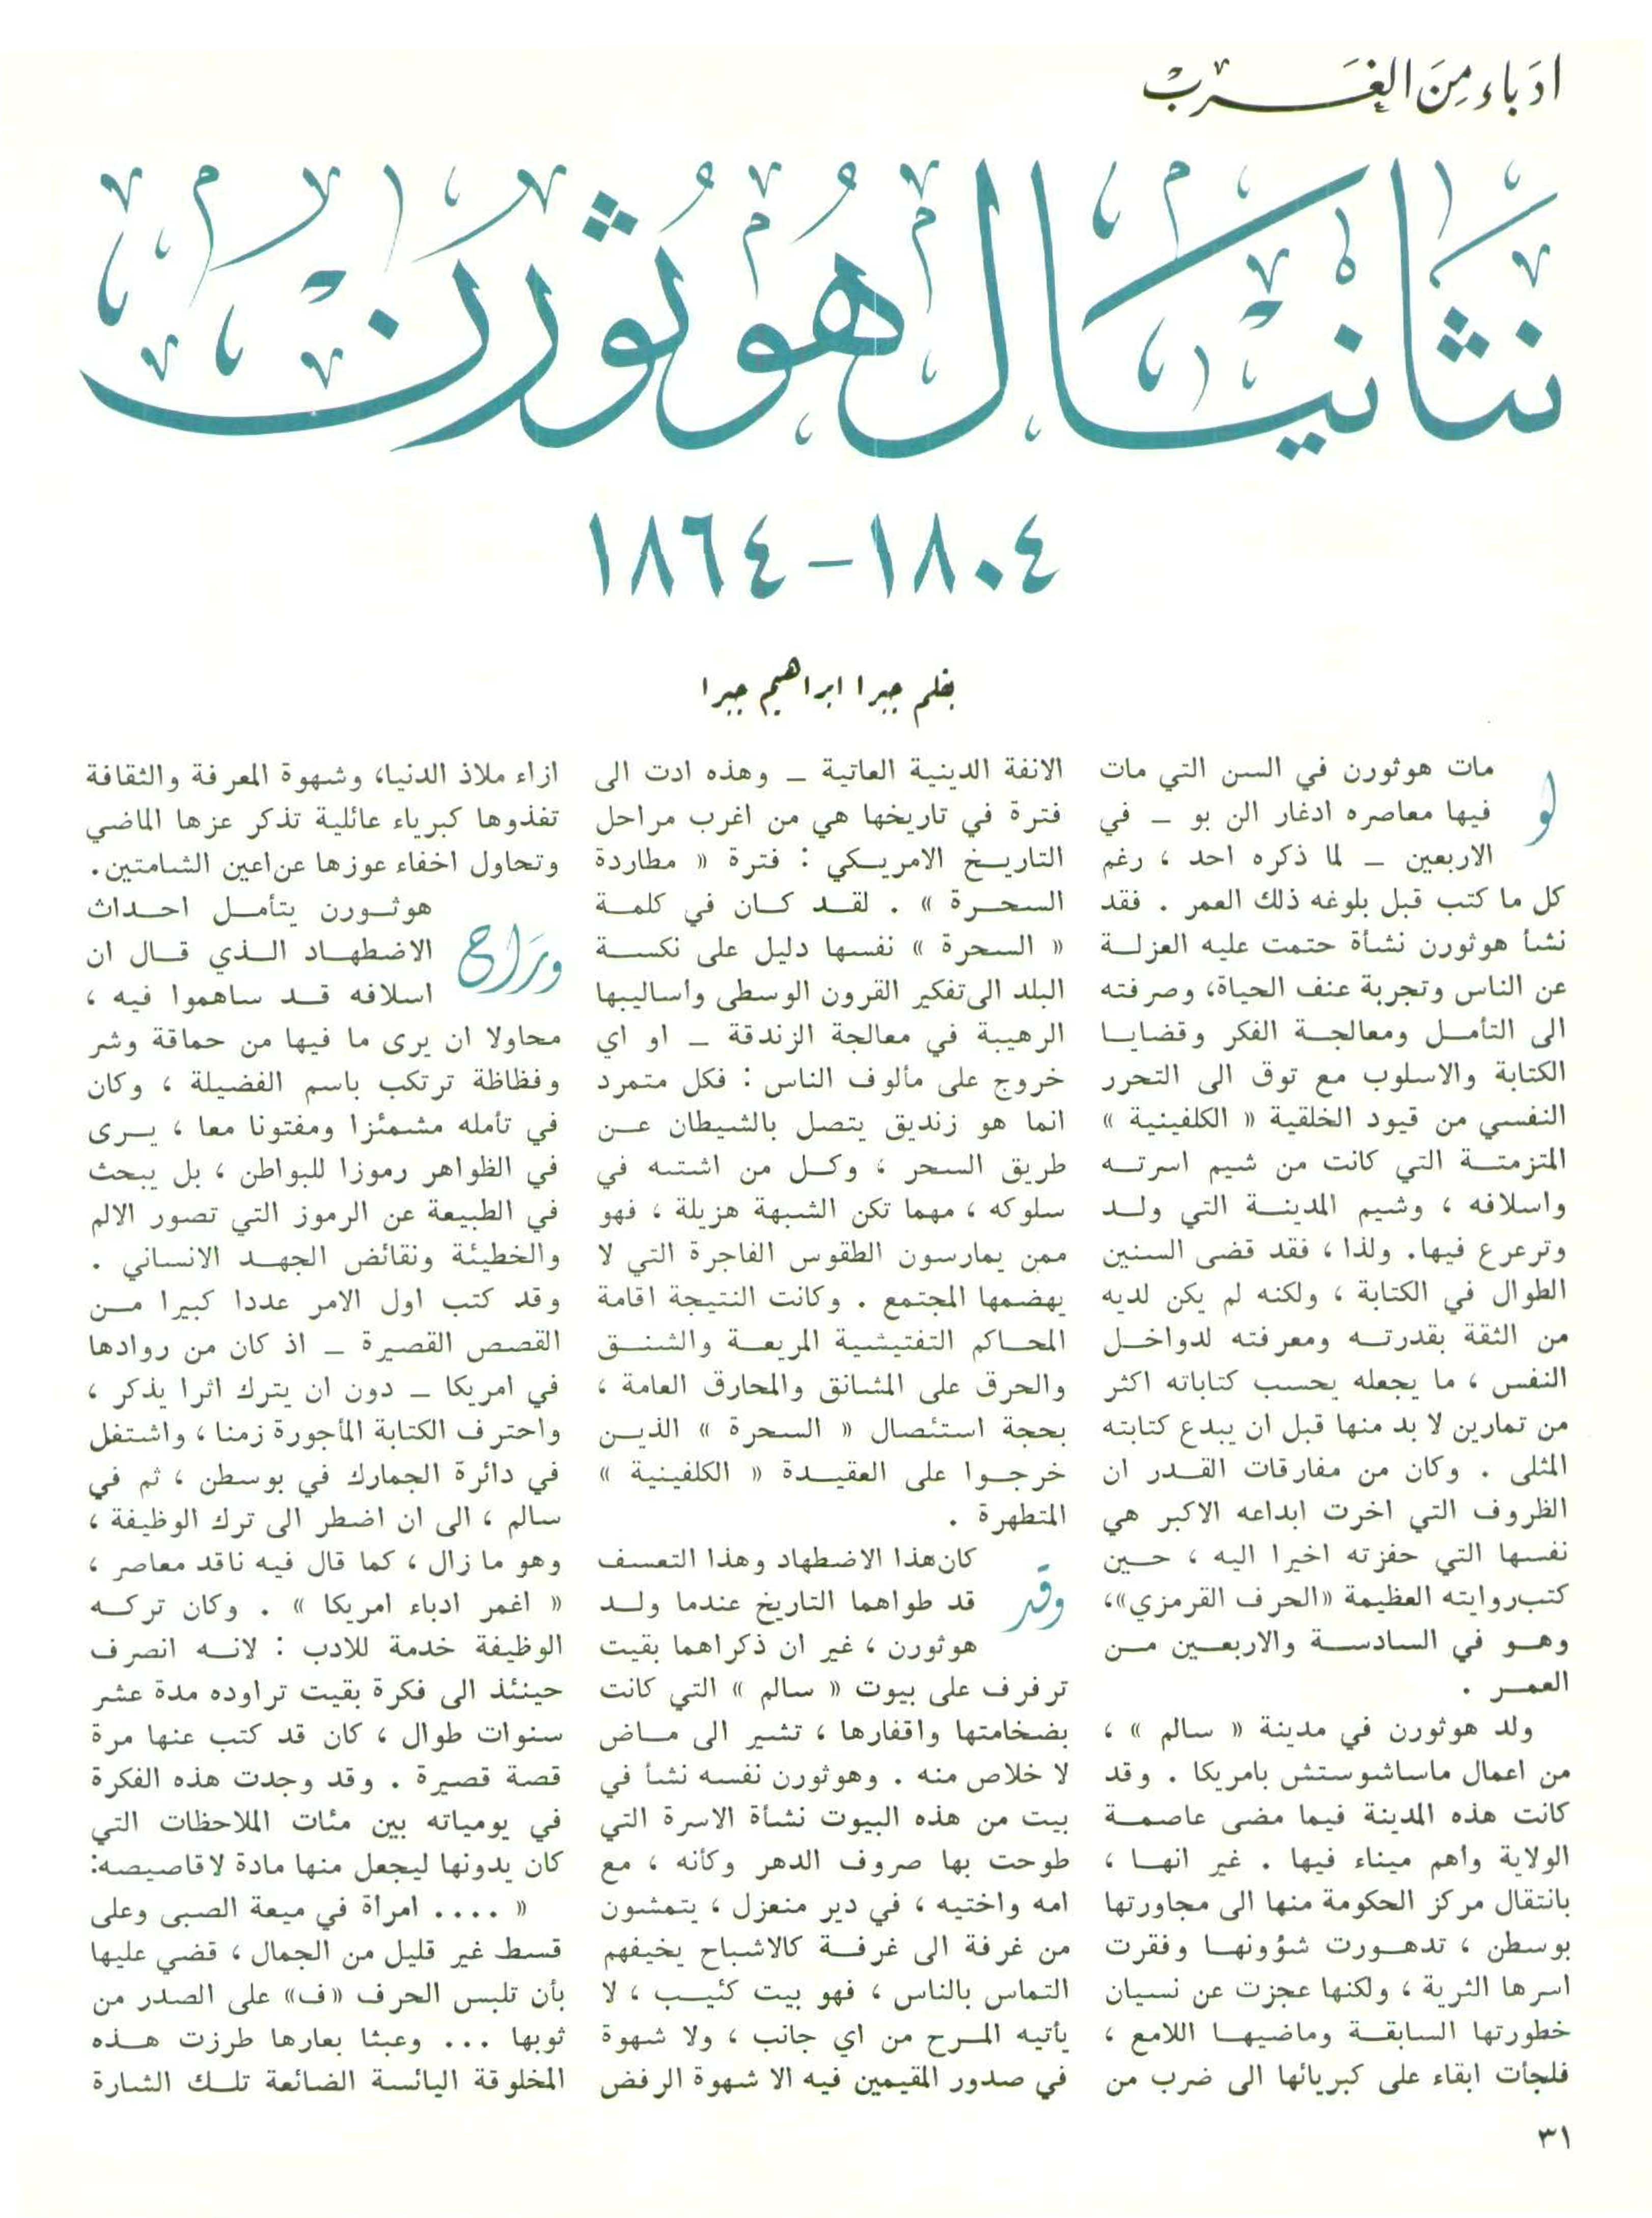 ادَباء مِنَ الغَرب
نثانيال هوثورن
١٨٠٤ - ١٨٦٤
بقلم جبرا ابراهيم جبرا
لو مات هوثورن في السن التي مات
فيها معاصره ادغار الن بو – في
الاربعين – لما ذكره احد ، رغم
كل ما كتب قبل بلوغه ذلك العمر . فقد
نشأ هوثورن نشأة حتمت عليه العزلة
عن الناس وتجربة عنف الحياة، وصرفته
الى التأمل ومعالجة الفكر وقضايا
الكتابة والاسلوب مع توق الى التحرر
النفسي من قيود الخلقية « الكلفينية »
المتزمتة التي كانت من شيم اسرته
واسلافه ، وشيم المدينة التي ولد
وترعرع فيها. ولذا ، فقد قضى السنين
الطوال في الكتابة ، ولكنه لم يكن لديه
من الثقة بقدرته ومعرفته لدواخل
النفس ، ما يجعله يحسب كتاباته اكثر
من تمارين لا بد منها قبل ان يبدع كتابته
المثلى . وكان من مفارقات القدر ان
الظروف التي اخرت ابداعه الاكبر هي
نفسها التي حفزته اخيرا اليه ، حين
كتب روايته العظيمة «الحرف القرمزي»،
وهو في السادسة والاربعين من
العمر .
ولد هوثورن في مدينة « سالم » ،
من اعمال ماساشوستش بامريكا . وقد
كانت هذه المدينة فيما مضى عاصمة
الولاية واهم ميناء فيها . غير انها ،
بانتقال مركز الحكومة منها الى مجاورتها
بوسطن ، تدهورت شؤونها وفقرت
اسرها الثرية ، ولكنها عجزت عن نسيان
خطورتها السابقة وماضيها اللامع ،
فلجأت ابقاء على كبريائها الى ضرب من
الانفة الدينية العاتية – وهذه ادت الى
فترة في تاريخها هي من اغرب مراحل
التاريخ الامريكي : فترة « مطاردة
السحرة » . لقد كان في كلمة
« السحرة » نفسها دليل على نكسة
البلد الى تفكير القرون الوسطى واساليبها
الرهيبة في معالجة الزندقة – او اي
خروج على مألوف الناس : فكل متمرد
انما هو زنديق يتصل بالشيطان عن
طريق السحر ، وكل من اشتبه في
سلوكه ، مهما تكن الشبهة هزيلة ، فهو
ممن يمارسون الطقوس الفاجرة التي لا
يهضمها المجتمع . وكانت النتيجة اقامة
المحاكم التفتيشية المريعة والشنق
والحرق على المشانق والمحارق العامة ،
بحجة استئصال « السحرة » الذين
خرجوا على العقيدة « الكلفينية »
المتطهرة .
وقد كان هذا الاضطهاد وهذا التعسف
قد طواهما التاريخ عندما ولد
هوثورن ، غير ان ذكراهما بقيت
ترفرف على بيوت « سالم » التي كانت
بضخامتها واقفارها ، تشير الى ماض
لا خلاص منه . وهوثورن نفسه نشأ في
بيت من هذه البيوت نشأة الاسرة التي
طوحت بها صروف الدهر وكأنه ، مع
امه واختيه ، في دير منعزل ، يتمشون
من غرفة الى غرفة كالاشباح يخيفهم
التماس بالناس ، فهو بيت كئيب ، لا
يأتيه المرح من اي جانب ، ولا شهوة
في صدور المقيمين فيه الا شهوة الرفض
ازاء ملاذ الدنيا، وشهوة المعرفة والثقافة
تغذوها كبرياء عائلية تذكر عزها الماضي
وتحاول اخفاء عوزها عن اعين الشامتين.
وراح هوثورن يتأمل احداث
الاضطهاد الذي قال ان
اسلافه قد ساهموا فيه ،
محاولا ان يرى ما فيها من حماقة وشر
وفظاظة ترتكب باسم الفضيلة ، وكان
في تأمله مشمئزا ومفتونا معا ، يرى
في الظواهر رموزا للبواطن ، بل يبحث
في الطبيعة عن الرموز التي تصور الالم
والخطيئة ونقائض الجهد الانساني .
وقد كتب اول الامر عددا كبيرا من
القصص القصيرة – اذ كان من روادها
في امريكا – دون ان يترك اثرا يذكر ،
واحترف الكتابة المأجورة زمنا ، واشتغل
في دائرة الجمارك في بوسطن ، ثم في
سالم ، الى ان اضطر الى ترك الوظيفة ،
وهو ما زال ، كما قال فيه ناقد معاصر ،
« اغمر ادباء امريكا » . وكان تركه
الوظيفة خدمة للادب : لانه انصرف
حينئذ الى فكرة بقيت تراوده مدة عشر
سنوات طوال ، كان قد كتب عنها مرة
قصة قصيرة . وقد وجدت هذه الفكرة
في يومياته بين مئات الملاحظات التي
كان يدونها ليجعل منها مادة لاقاصيصه:
« .... امرأة في ميعة الصبى وعلى
قسط غير قليل من الجمال ، قضي عليها
بأن تلبس الحرف «ف» على الصدر من
ثوبها ... وعبثا بعارها طرزت هذه
المخلوقة اليائسة الضائعة تلك الشارة
٣١